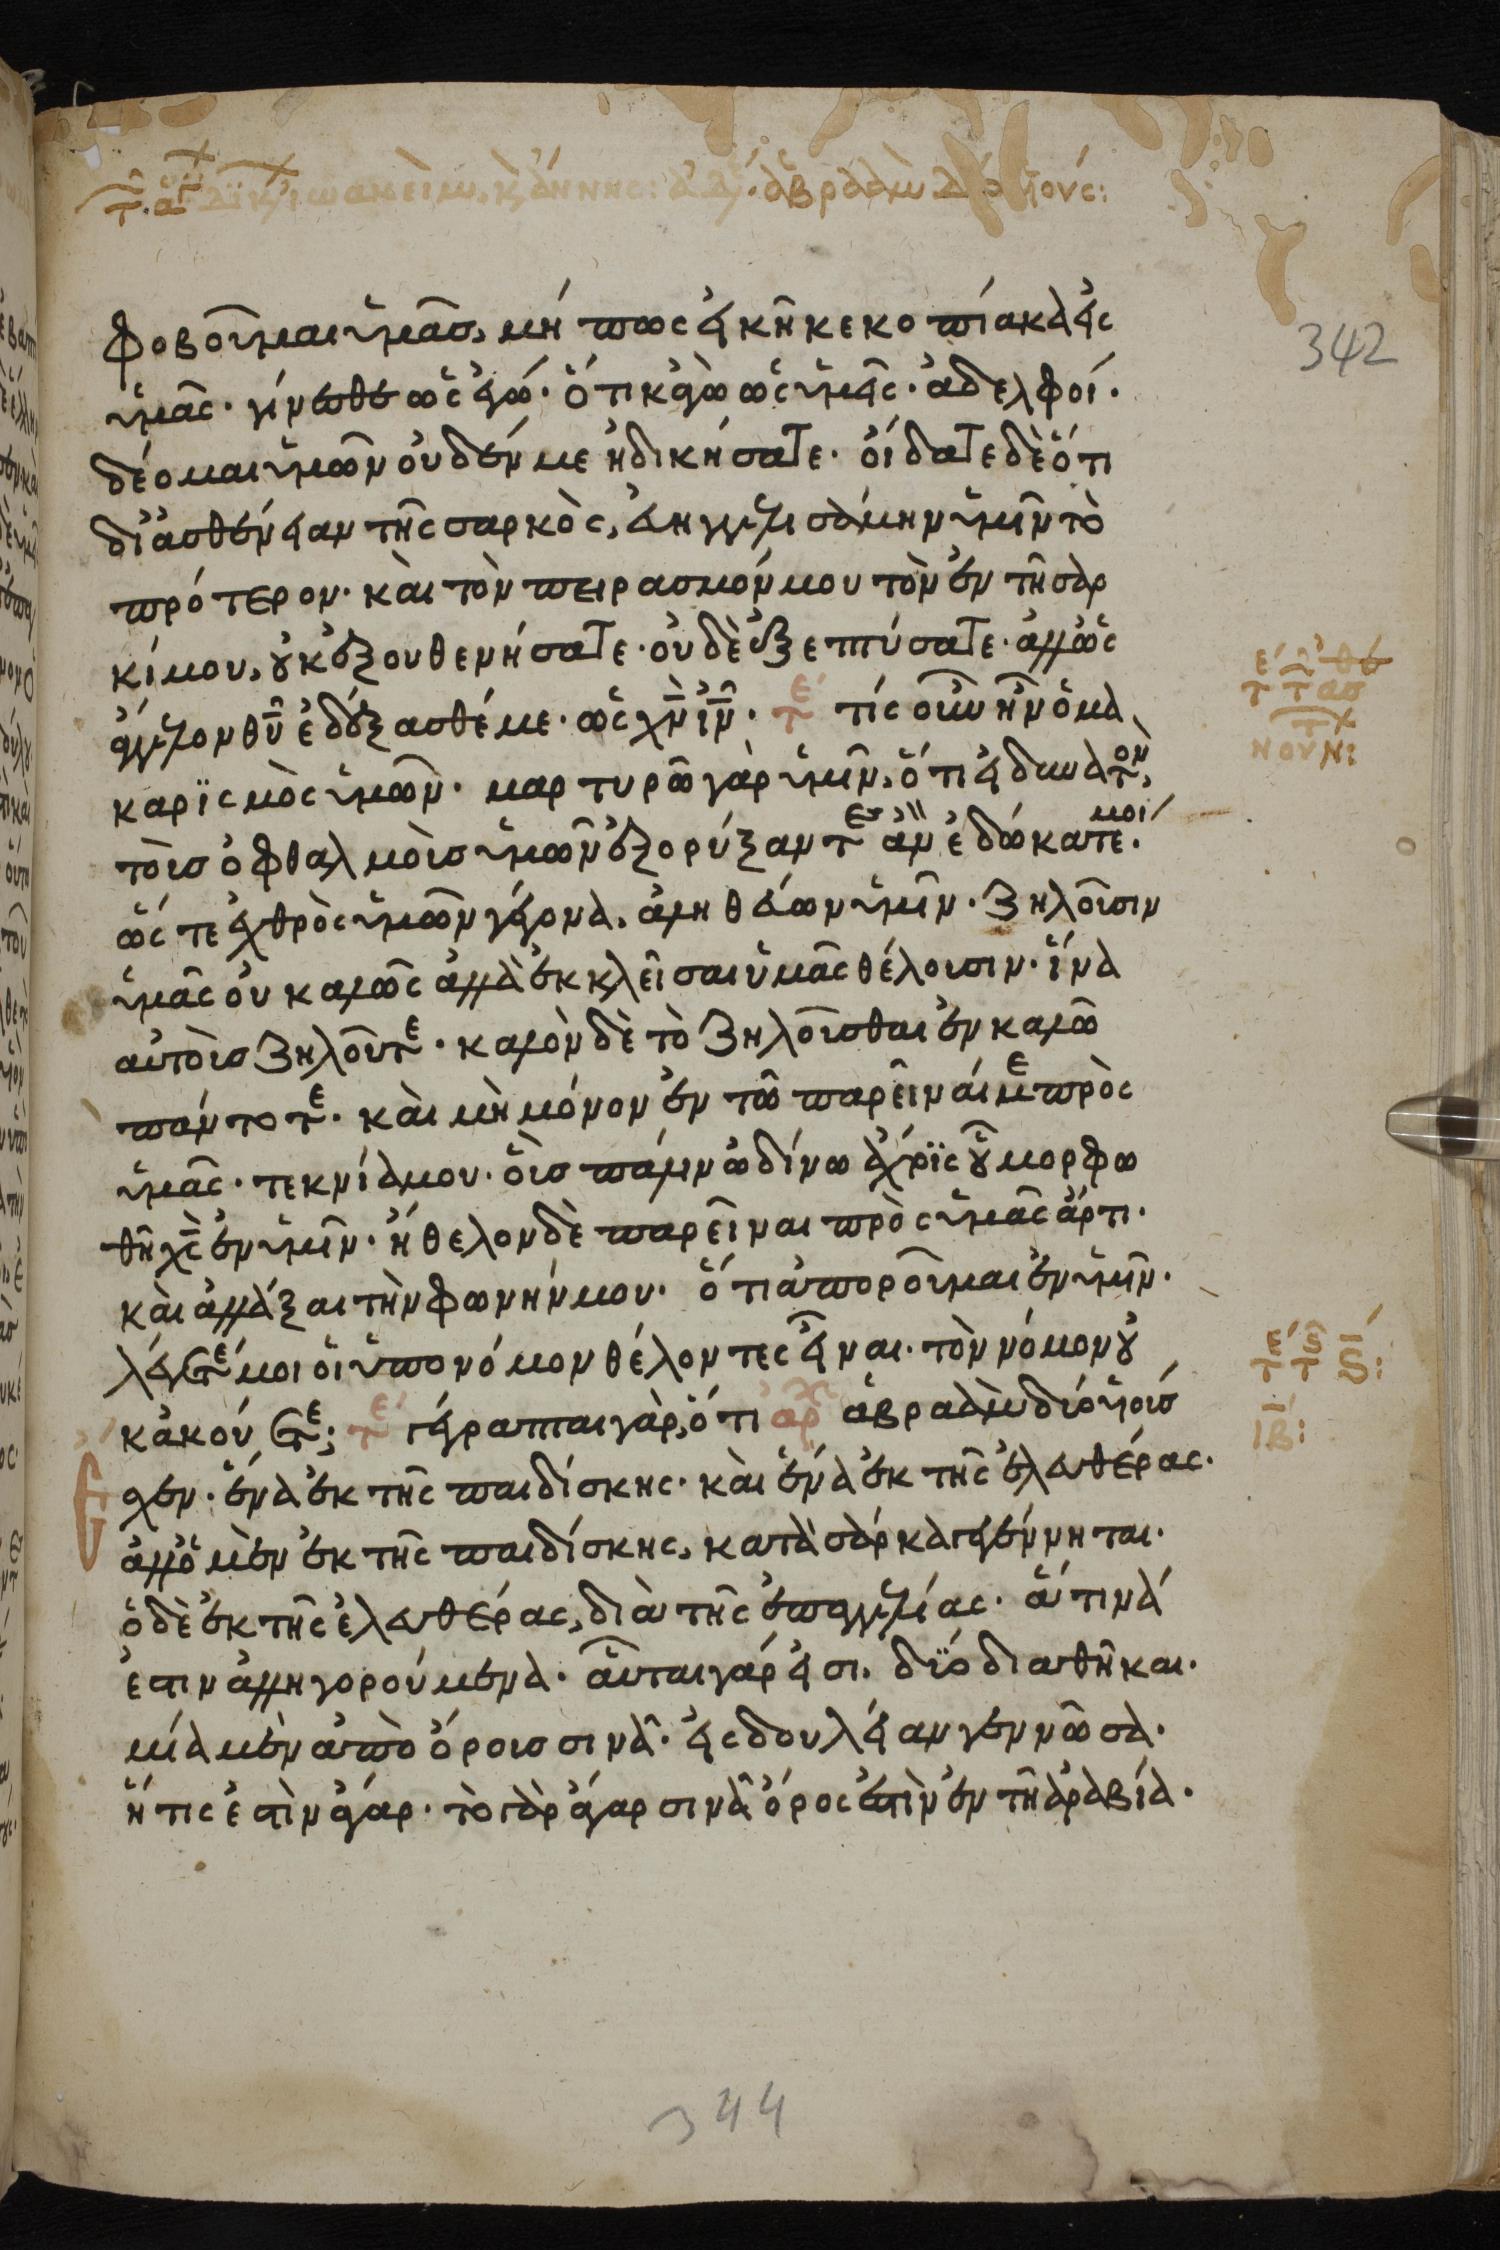 ἀβραὰμ
342
φοβοῦμαι ὑμᾶσ, μή πως εἰκῆ κεκοπίακα εἰς
ὑμᾶς· γίνεσθε ὡς ἐγώ· ὅτι κἀγὼ ὡς ὑμεῖς· ἀδελφοί·
δέομαι ὑμῶν οὐδέν με ἠδικήσατε· οἴδατε δὲ ὅτι
δι ἀσθένειαν τῆς σαρκὸς, εὐηγγελισάμην ὑμῖν τὸ
πρότερον· καὶ τὸν πειρασμόν μου τὸν ἐν τῆ σαρ
κί μου, οὐκ ἐξουθενήσατε· οὐδὲ ἐξεπτύσατε· ἀλλ ὡς
ἄγγελον θῦ ἐδέξασθέ με· ὡς χν ιν· τε τίς οὖν ἦν ὁ μα
καρϊσμὸς ὑμῶν· μαρτυρῶ γὰρ ὑμῖν, ὅτι εἰ δυνατον,
τοὺσ ὀφθαλμοὺσ ὑμῶν ἐξορύξαντες ἂν ἐδώκατε μοι·
ὥστε ἐχθρὸς ὑμῶν γέγονα, ἀληθεύων ὑμῖν· ζηλοῦσιν
ὑμᾶς οὐ καλῶς ἀλλὰ ἐκκλεῖσαι ὑμᾶς θέλουσιν· ἵνα
αὐτοὺσ ζηλοῦτε· καλὸν δὲ τὸ ζηλοῦσθαι ἐν καλῶ
πάντοτε· καὶ μὴ μόνον ἐν τῶ παρεῖναί με πρὸς
ὑμᾶς· τεκνία μου· οὓσ πάλιν ὠδίνω ἄχρϊς οὗ μορφω
θῆ χς ἐν ὑμῖν· ἤθελον δὲ παρεῖναι πρὸς ὑμᾶς ἄρτι·
καὶ ἀλλάξαι τὴν φωνήν μου· ὅτι ἀποροῦμαι ἐν ὑμῖν·
λέγετέ μοι οἱ ὑπο νόμον θέλοντες εἶναι· τὸν νόμον οὐ
κ ἀκούετε; τε γέγραπται γὰρ, ὅτι αρ ἀβραὰμ δύο υἱοὺσ
ἔσχεν· ἕνα ἐκ τῆς παιδίσκης· καὶ ἕνα ἐκ τῆς ἐλευθέρας·
ἀλλ ὁ μὲν ἐκ τῆς παιδίσκης, κατὰ σάρκα γεγέννηται·
ὁ δὲ ἐκ τῆς ἐλευθέρας, διὰ τῆς ἐπαγγελίας· ἅτινά
ἐστιν ἀλληγορούμενα· αὗται γάρ εἰσι· δϊό διαθῆκαι·
μία μὲν ἀπὸ ὄρους σινᾶ· εἰς δουλείαν γεννῶσα·
ἥτις ἐστὶν ἄγαρ· τὸ γὰρ ἄγαρ σινᾶ ὄρος ἐστὶν ἐν τῆ ἀραβία·
ιβ:
344